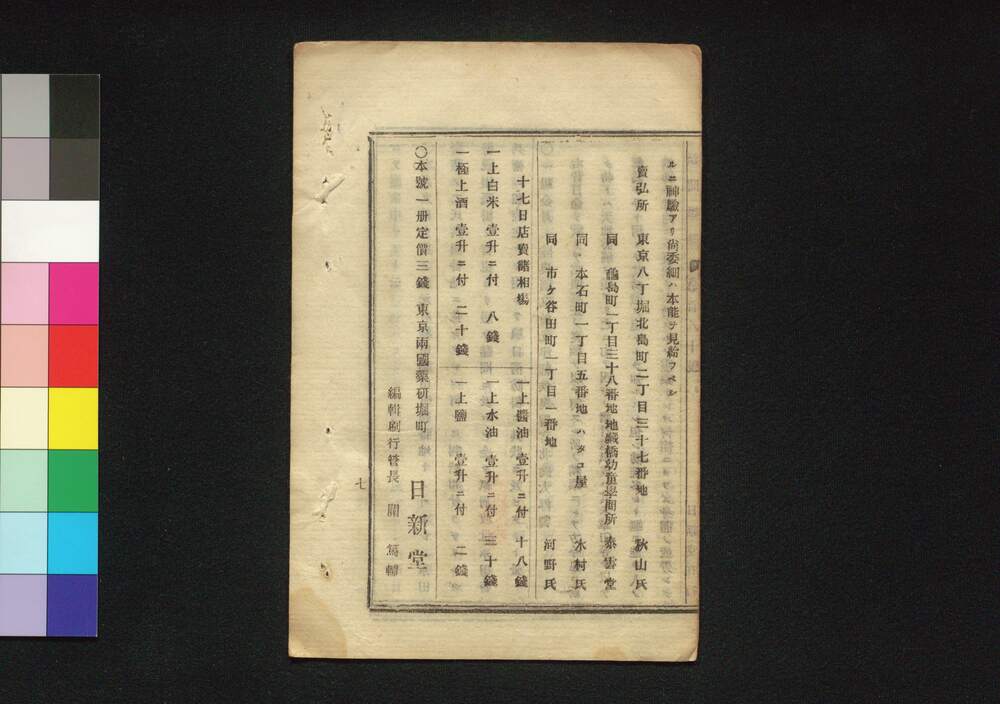 ルニ神驗アリ尚委細ハ本能ヲ見給フベシ
賣弘所　東京八丁堀北島町二丁目三十七番地　秋山氏
同　龜島町一丁目三十八番地地藏橋幼童學問所　泰雲堂
同　本石町一丁目五番地ハタコ屋　木村氏
同　市ケ谷田町一丁目一番地　河野氏
十七日店賣諸相塲
一上白米　壹升ニ付　八錢
一極上酒　壹升ニ付　二十錢
一上醬油　壹升ニ付　十八錢
一上水油　壹升ニ付　三十錢
一上鹽　壹升ニ付　二錢
〇本號一册定價三錢　東京兩國藥研堀町　日新堂
編輯刷行管長　關　篤輔
七